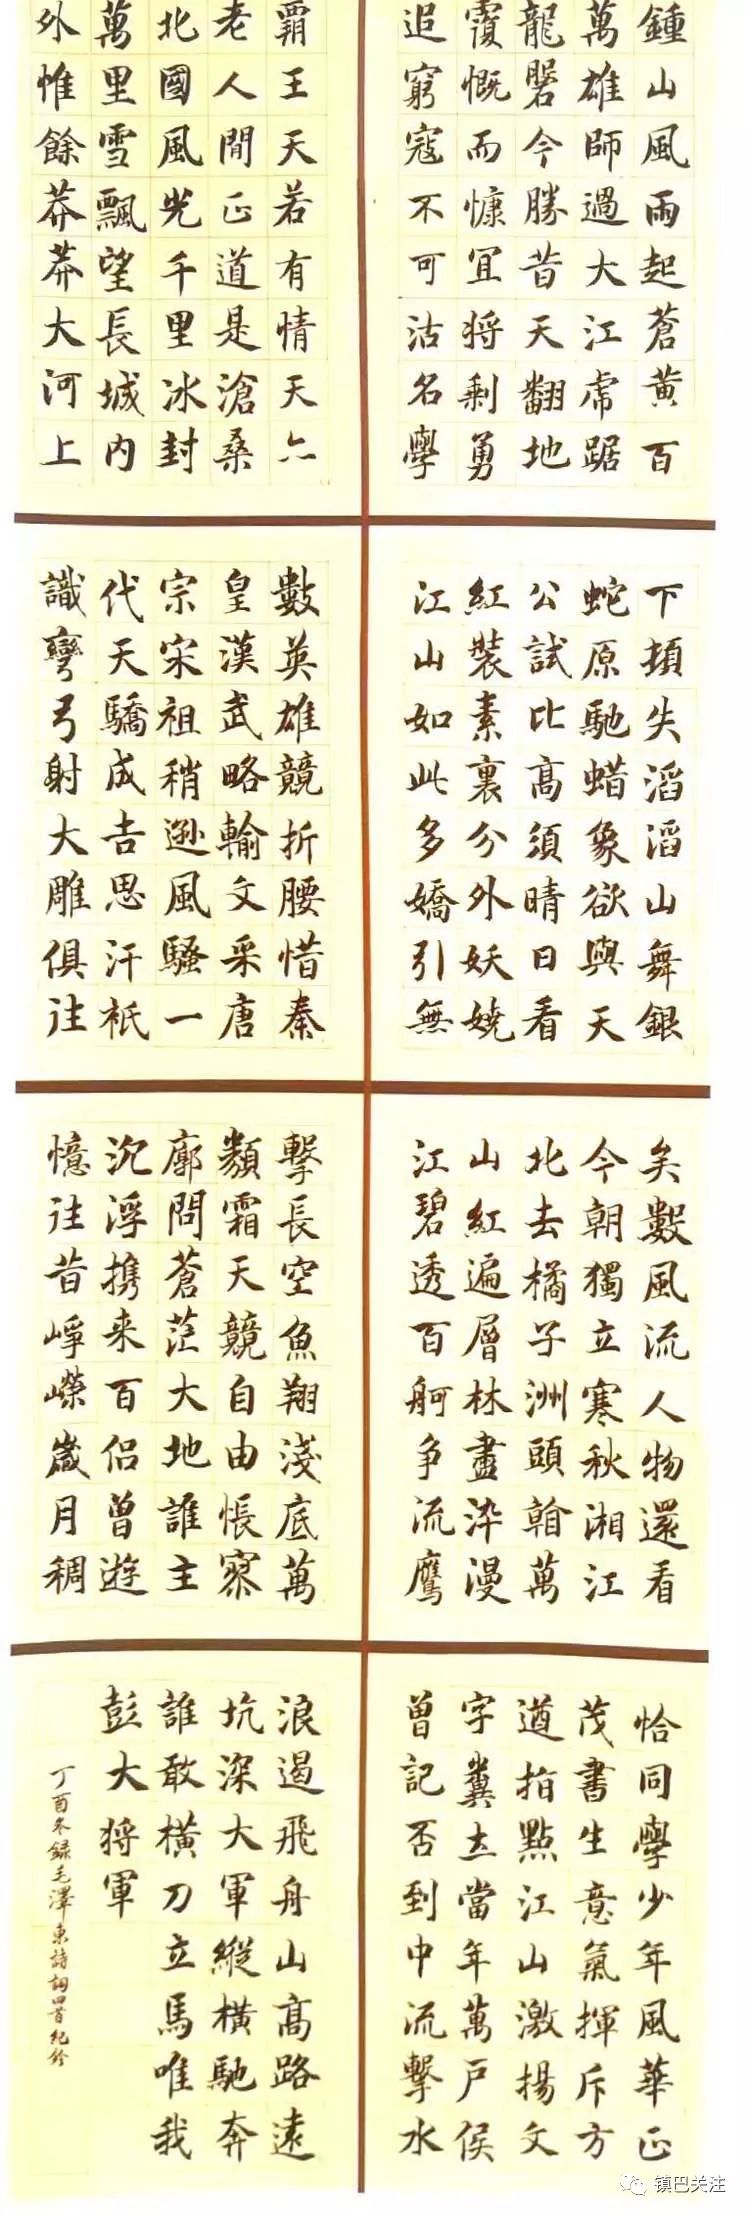 鍾山風雨起蒼黃百
萬雄師過大江虎踞
龍磐今勝昔天翻地
覆慨而慷宜将剩勇
追窮寇不可沽名學
霸王天若有情天亦
老人間正道是滄桑
北國風光千里冰封
萬里雪飄望長城内
外惟餘莽莽大河上
下頓失滔滔山舞銀
蛇原馳蜡象欲與天
公試比高須晴日看
紅裝素裹分外妖嬈
江山如此多嬌引無
數英雄競折腰惜秦
皇漢武略輸文采唐
宗宋祖稍遜風騷一
代天驕成吉思汗衹
識彎弓射大雕俱往
矣數風流人物還看
今朝獨立寒秋湘江
北去橘子洲頭看萬
山紅遍層林盡染漫
江碧透百舸争流鷹
擊長空魚翔淺底萬
類霜天競自由悵寥
廓問蒼茫大地誰主
沉浮携来百侣曾遊
憶往昔崢嶸歲月稠
恰同學少年風華正
茂書生意氣揮斥方
遒指點江山激揚文
字糞土當年萬户侯
曾記否到中流擊水
浪遏飛舟山高路遠
坑深大軍縱橫馳奔
誰敢橫刀立馬唯我
彭大将軍
丁酉冬録毛澤東詩詞四首紀
镇巴关注